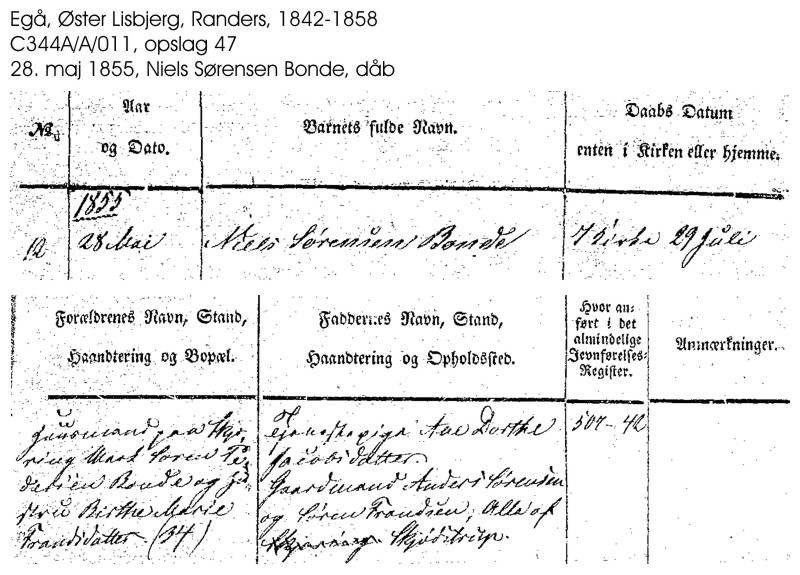 Egå, Øster Lisbjerg, Randers, 1842-1858
C344A/A/011, opslag 47
28. maj 1855, Niels Sørensen Bonde, dåb
No.
Aar
og Dato.
Barnets fulde Navn.
Daabs Datum
enten i Kirken eller hjemme.
1855
12
28 Mai
Niels Sørensen Bonde
I Kirke 29 Juli
Forældrenes Navn, Stand,
Haandtering og Bopæl.
Faddernes Navn, Stand,
Haandtering og Opholdssted.
Hvor an-
ført i det
almindelige
Jevnførelses-
Register.
Anmærkninger.
Huusmand paa Skjø-
ring Mark Søren Pe-
dersen Bonde og Hu-
stru Birthe Marie
Frandsdatter. (34)
Tjenestepige Ane Dorthe
Jacobsdatter.
Gaardmand Anders Sørensen
og Søren Frandsen, Alle af
Skjødstrup.
507-42